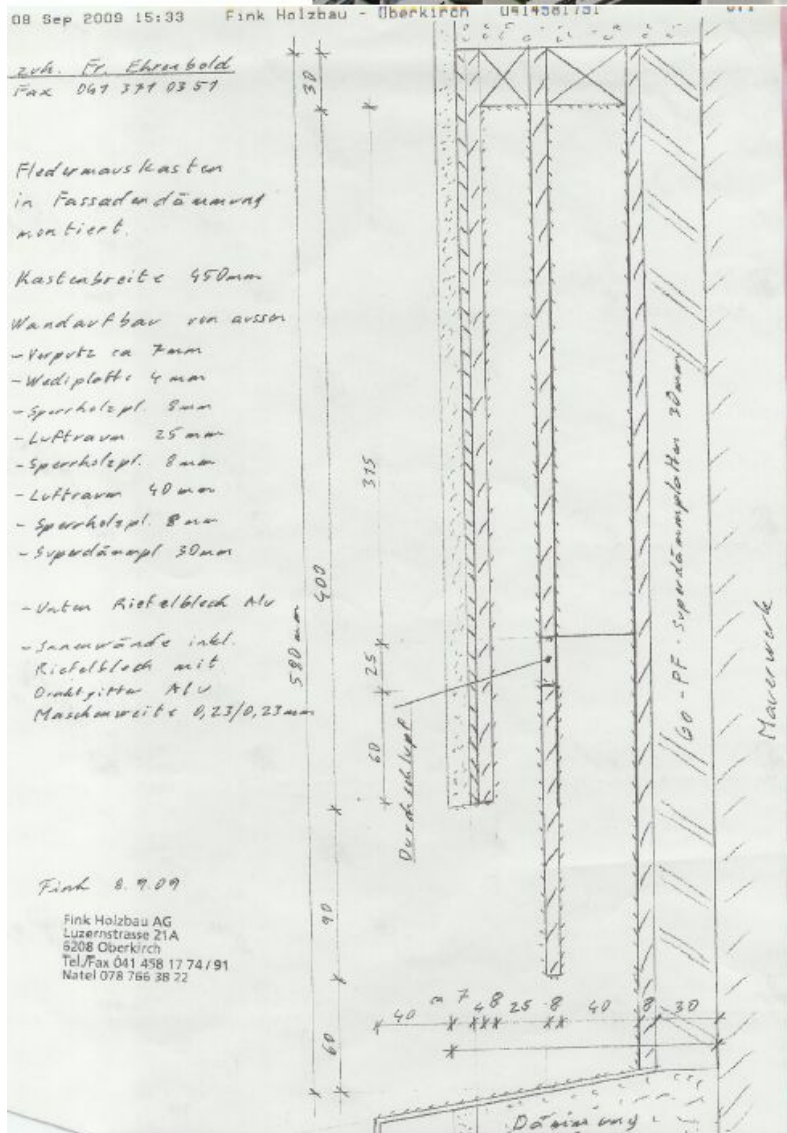 08 Sep 2009 15:33 Fink Holzbau - Oberkirch 0414581791
zuh. Fr. Ehrenbold
Fax 041 371 03 51
Fledermauskasten
in Fassadendämmung
montiert.
Kastenbreite 450mm
Wandaufbau von aussen
- Verputz ca 7mm
- Wediplatte 4 mm
- Sperrholzpl. 8mm
- Luftraum 25mm
- Sperrholzpl. 8mm
- Luftraum 40mm
- Sperrholzpl. 8mm
- Superdämmpl 30mm
- Unten Riefelblech Alu
- Innenwände inkl.
Riefelblech mit
Drahtgitter Alu
Maschenweite 0,23/0,23mm
Fink 8.9.09
Fink Holzbau AG
Luzernstrasse 21A
6208 Oberkirch
Tel./Fax 041 458 17 74 / 91
Natel 078 766 38 22
580mm
30
400
90
60
315
25
60
Durchschlupf
GO-PF-Superdämmplatten 30mm
Mauerwerk
40 ca 7 4 8 25 8 40 8 30
Dämmung